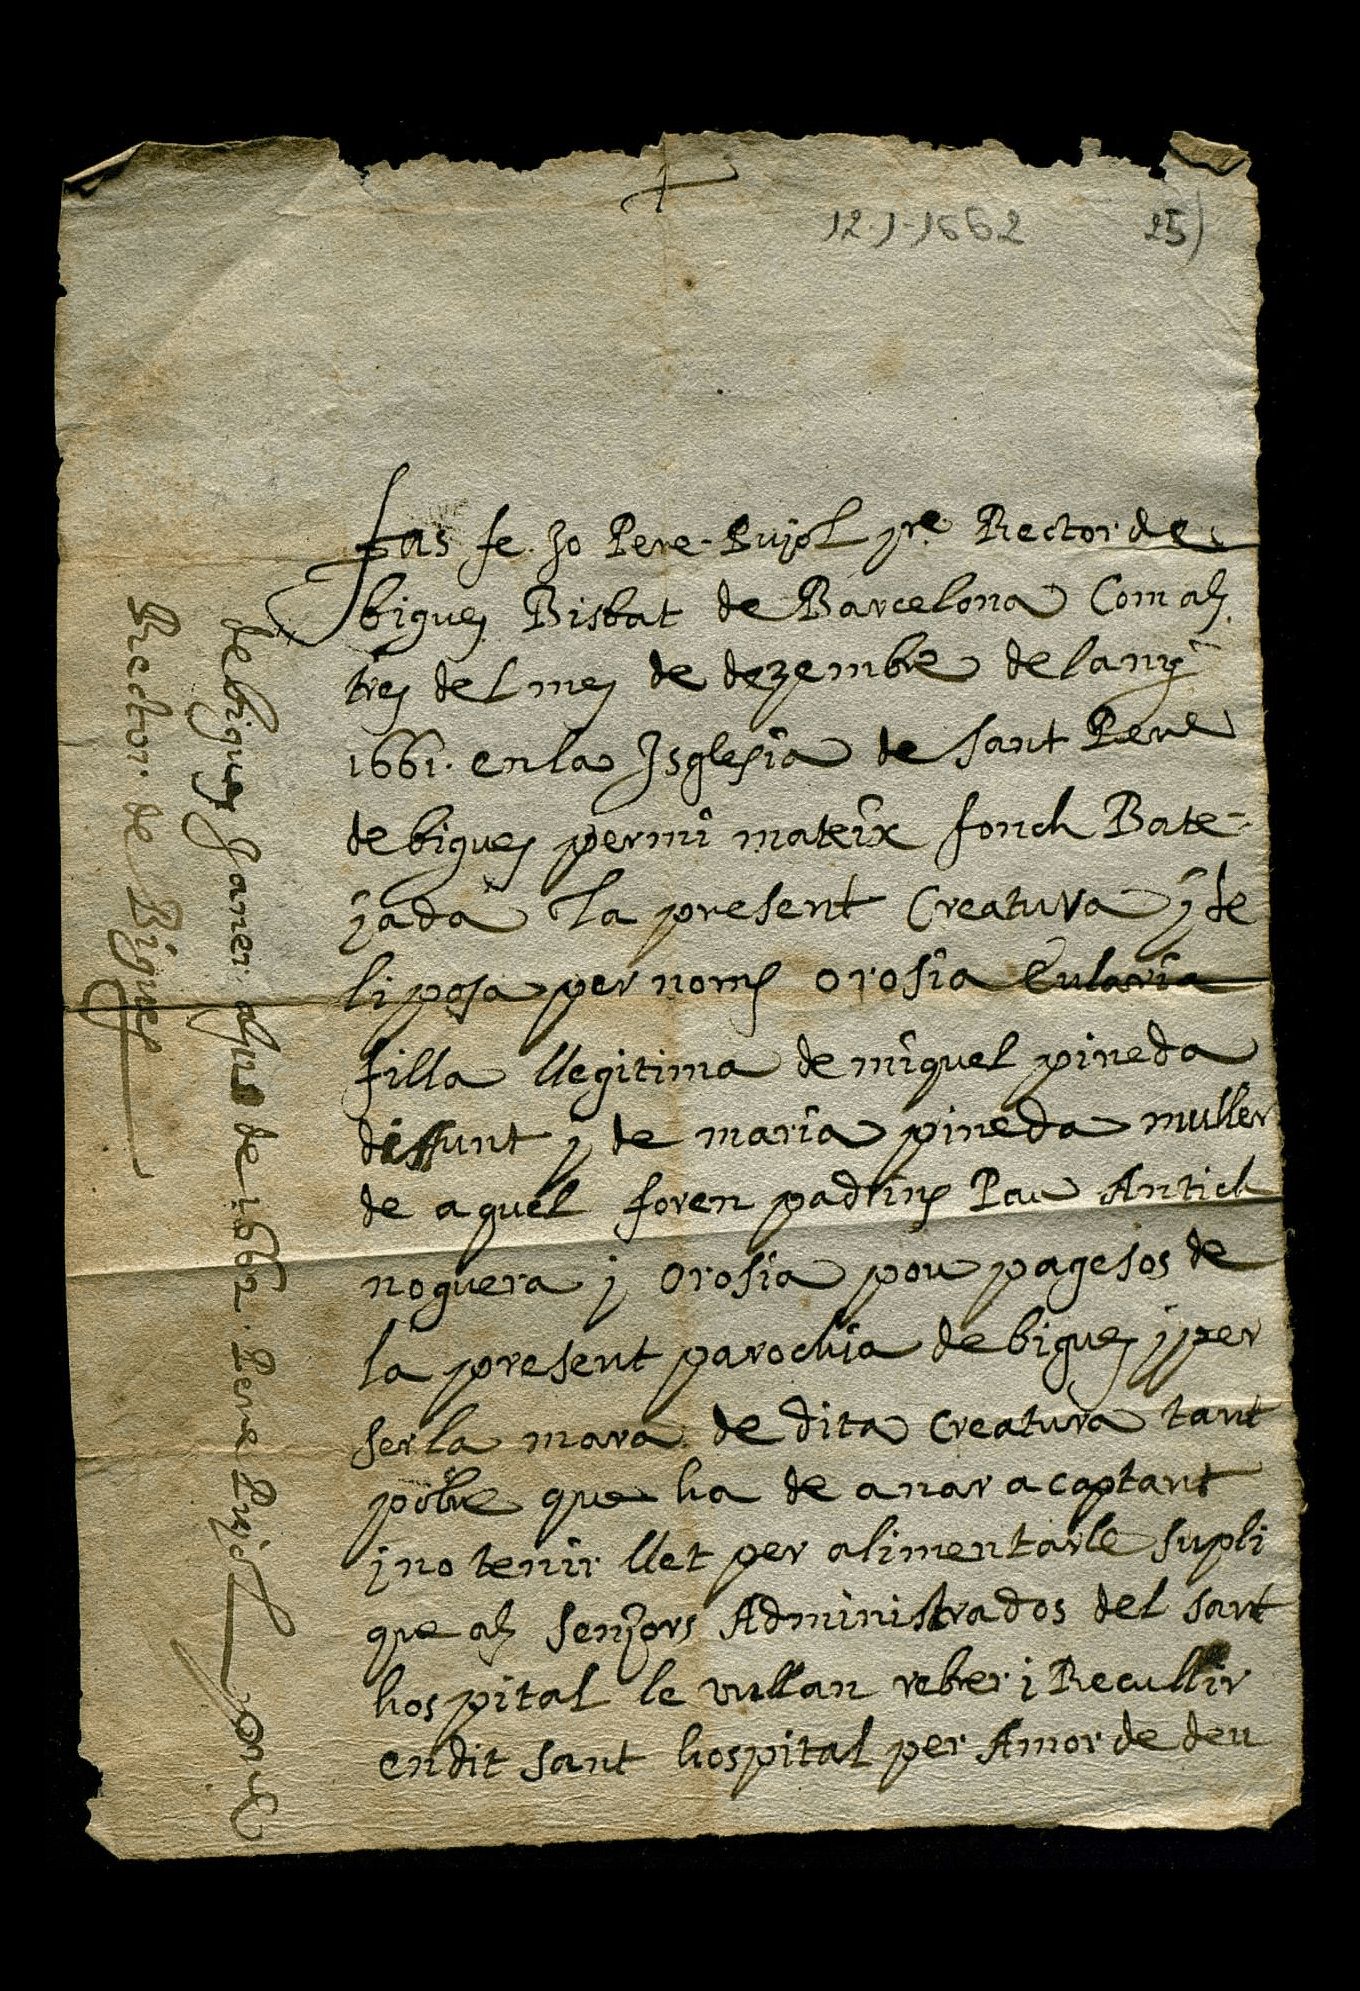 12-1-1662 25)
fas fe Jo Pere Pujol pre. Rector de
bigues Bisbat de Barcelona Com als
tres del mes de dezembre de lany
1661. en la Isglesia de sant Pere
de bigues per mi mateix fonch Bate-
jada la present Creatura j se
li posa per noms orosia Eularia
filla llegitima de miquel pineda
diffunt j de maria pineda muller
de aquel foren padrins Pau Antich
noguera j orosia pou pagesos de
la present parochia de bigues j per
ser la mara de dita Creatura tant
pobre que ha de anar a captant
j no tenir llet per alimentarle supli
que als senyors Administrados del sant
hospital le vullan rebrer i Recullir
en dit sant hospital per Amor de deu
de bigues Janer als de 1662. Pere Pujol pre
Rector de Bigues